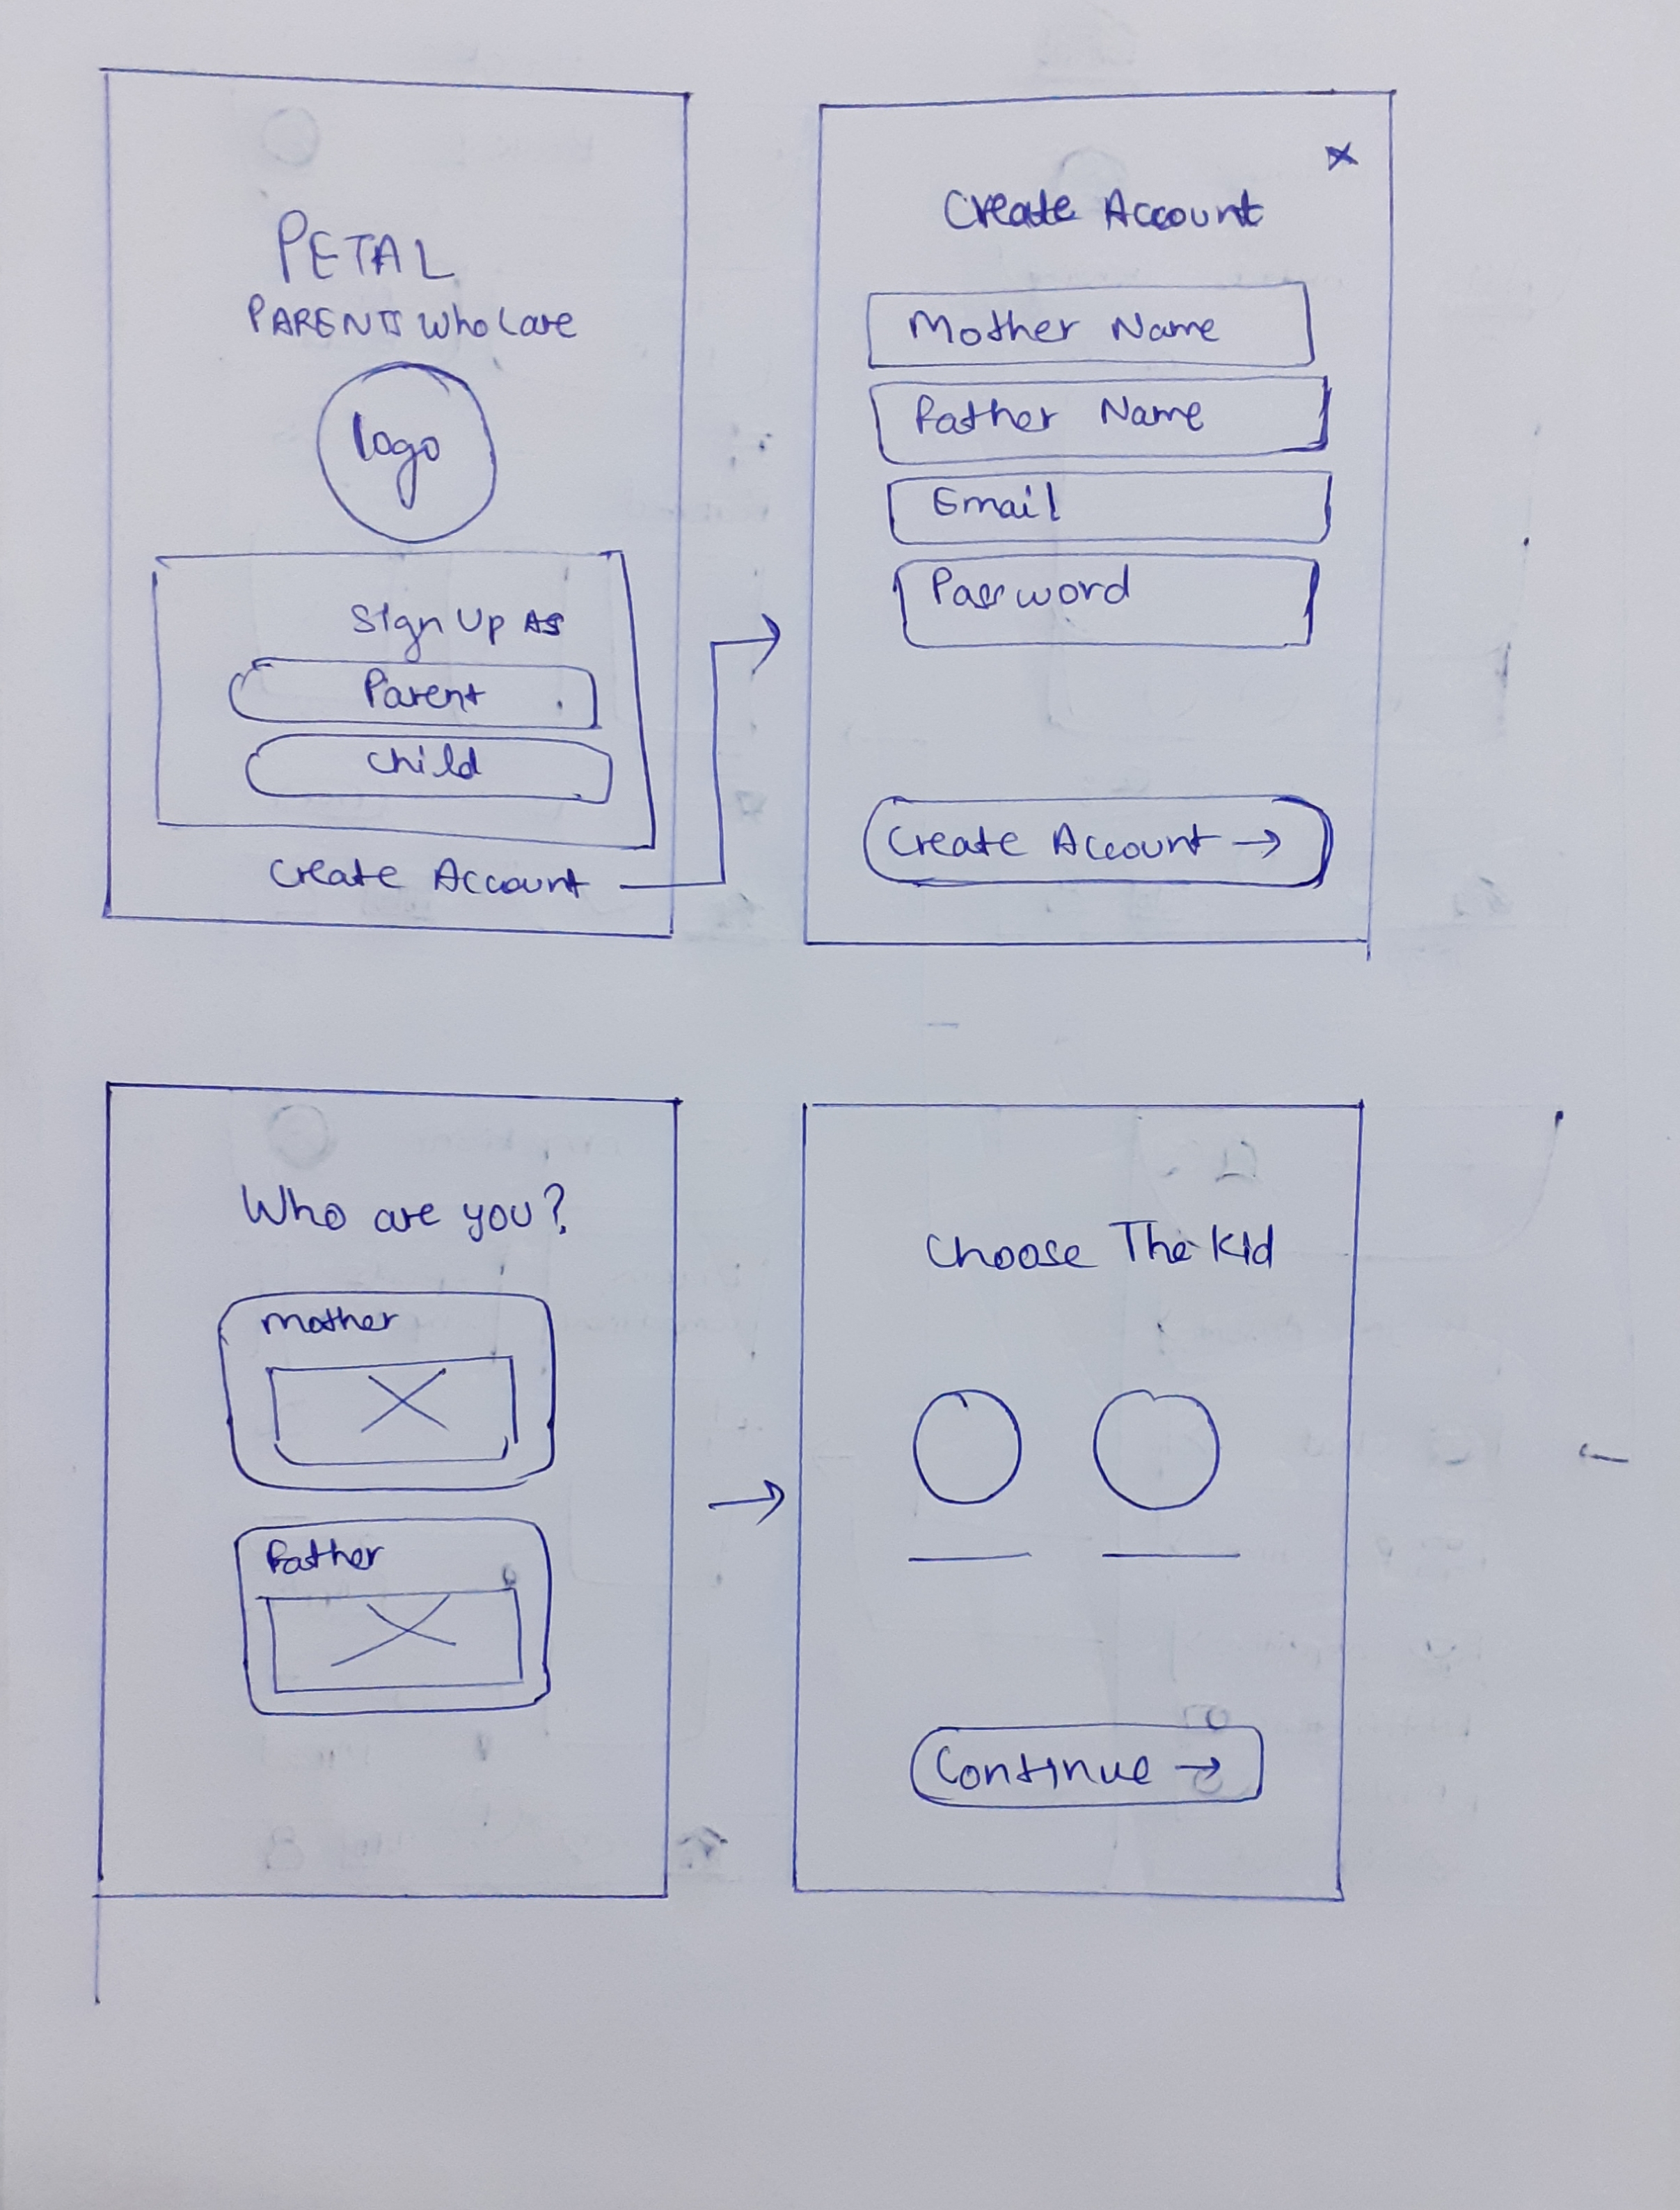 PETAL
PARENTS Who Care
logo
Sign Up As
Parent
Child
Create Account
x
Create Account
Mother Name
Father Name
Email
Password
Create Account →
Who are you?
Mother
Father
Choose The Kid
Continue →